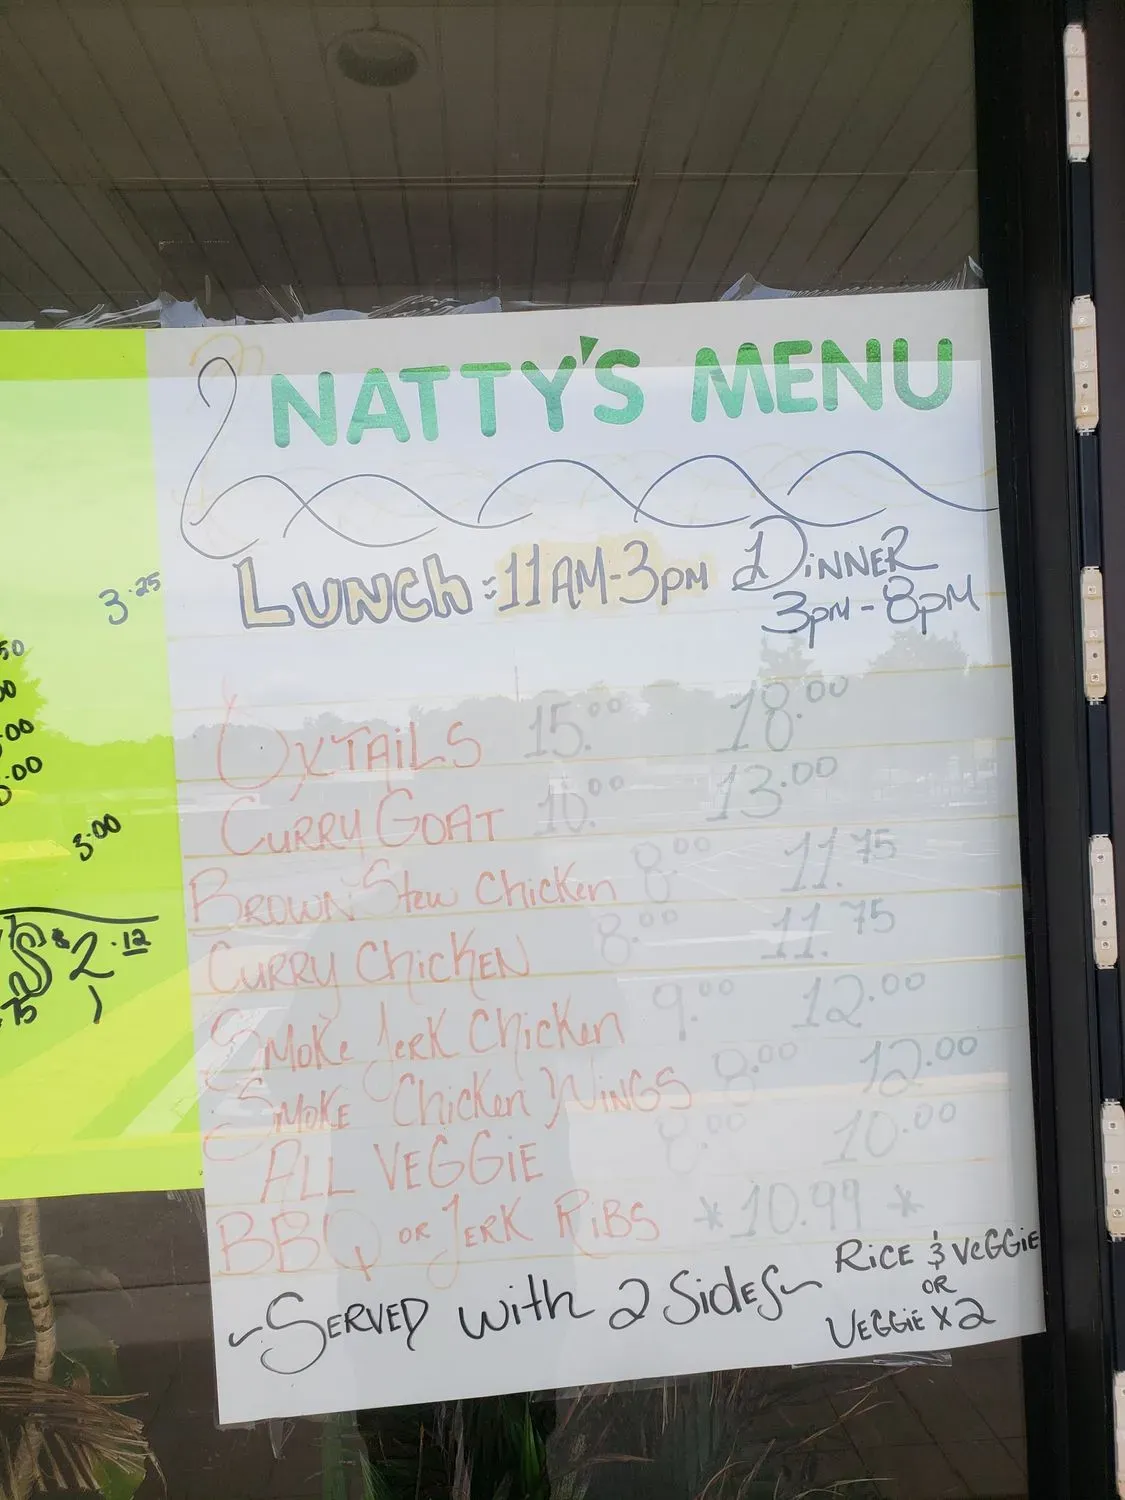 NATTY'S MENU
LUNCH = 11AM-3PM DINNER
3PM - 8PM
OXTAILS 15.00 18.00
CURRY GOAT 10.00 13.00
BROWN Stew Chicken 8.00 11.75
CURRY ChicKEN 8.00 11.75
SMOKE JERK Chicken 9.00 12.00
SMOKE Chicken WINGS 8.00 12.00
ALL VEGGiE 8.00 10.00
BBQ OR JERK RiBS *10.99*
~SERVED with 2 SidES~
RicE & VEGGiE
OR
VEGGiE X 2
3.25
50
00
.00
.00
3.00
$2.12
.75